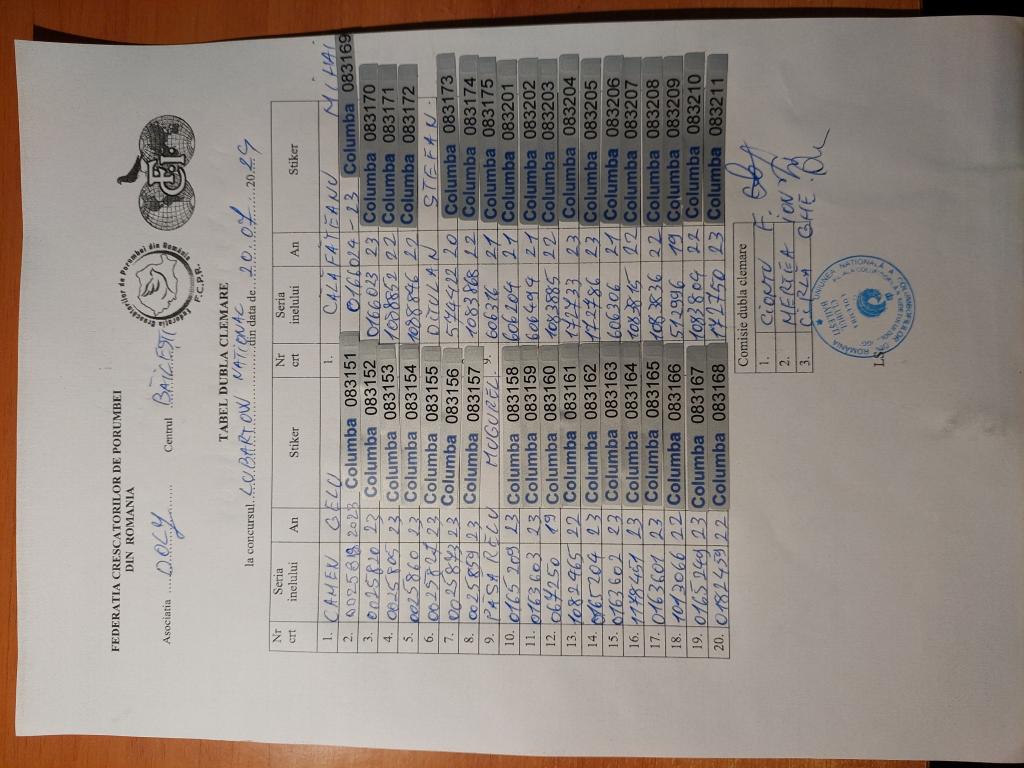 FEDERATIA CRESCATORILOR DE PORUMBEI
DIN ROMANIA
Asociatia ....DOLY........ Centrul ..BĂILEȘTI
Federatia Crescatorilor de Porumbei din România
F.C.P.R.
TABEL DUBLA CLEMARE
la concursul LUBARTOW NATIONAL din data de 20.07 2024
Nr crt Seria inelului An Stiker Nr crt Seria inelului An Stiker
1. CAMEN GELU 1. CALAFATEANU MIHAI
2. 2023 Columba 083151 016024 - 23 Columba 083169
3. 0025820 22 Columba 083152 016023 23 Columba 083170
4. 0025885 23 Columba 083153 1088852 22 Columba 083171
5. 0025860 23 Columba 083154 1088846 22 Columba 083172
6. 23 Columba 083155 ȘTEFAN
7. 23 Columba 083156 20 Columba 083173
8. 0025859 23 Columba 083157 22 Columba 083174
9. PASĂRELU MUGUREL 9. 60616 21 Columba 083175
10. 0165209 23 Columba 083158 606204 21 Columba 083201
11. 0163603 23 Columba 083159 608494 21 Columba 083202
12. 064250 19 Columba 083160 1083885 22 Columba 083203
13. 1082465 22 Columba 083161 172733 23 Columba 083204
14. 0165204 23 Columba 083162 172736 23 Columba 083205
15. 0163602 23 Columba 083163 60306 21 Columba 083206
16. 1178451 23 Columba 083164 1083815 Columba 083207
17. 0163601 23 Columba 083165 1083836 22 Columba 083208
18. 1013066 22 Columba 083166 512996 19 Columba 083209
19. 0165249 23 Columba 083167 1083804 22 Columba 083210
20. 0182459 22 Columba 083168 172750 23 Columba 083211
Comisie dubla clemare
1. F.
2. MERTEA ION
3. GHE.
L.S.